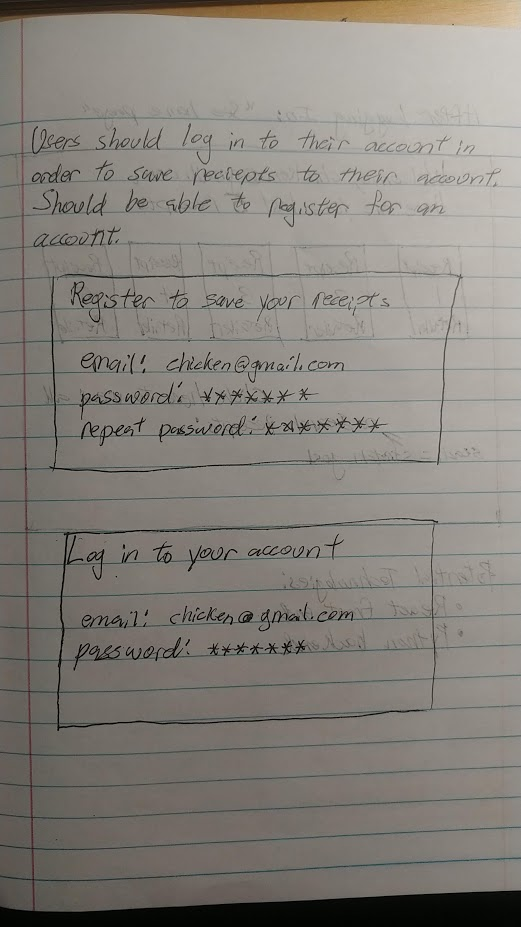 Users should log in to their account in
order to save reciepts to their account.
Should be able to register for an
account.
Register to save your receipts
email: chicken@gmail.com
password: *******
repeat password: *******
Log in to your account
email: chicken@gmail.com
password: *******